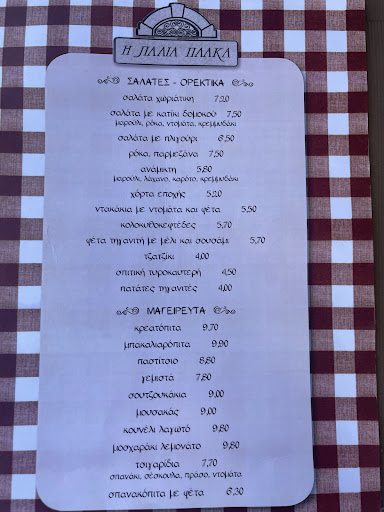 Η ΠΑΛΙΑ ΠΛΑΚΑ
ΣΑΛΑΤΕΣ - ΟΡΕΚΤΙΚΑ
σαλάτα χωριάτικη 7,20
σαλάτα με κατίκι δομοκού 7,50
μαρούλι, ρόκα, ντομάτα, κρεμμυδάκι
σαλάτα με πλιγούρι 6,50
ρόκα, παρμεζάνα 7,50
ανάμικτη 5,80
μαρούλι, λάχανο, καρότο, κρεμμυδάκι
χόρτα εποχής 5,20
ντακάκια με ντομάτα και φέτα 5,50
κολοκυθοκεφτέδες 5,70
φέτα τηγανιτή με μέλι και σουσάμι 5,70
τζατζίκι 4,00
σπιτική τυροκαυτερή 4,50
πατάτες τηγανιτές 4,00
ΜΑΓΕΙΡΕΥΤΑ
κρεατόπιτα 9,70
μπακαλιαρόπιτα 9,90
παστίτσιο 8,80
γεμιστά 7,80
σουτζουκάκια 9,00
μουσακάς 9,00
κουνέλι λαγωτό 9,80
μοσχαράκι λεμονάτο 9,80
τσιγαρίδια 7,70
σπανάκι, σέσκουλα, πράσο, ντομάτα
σπανακόπιτα με φέτα 6,30